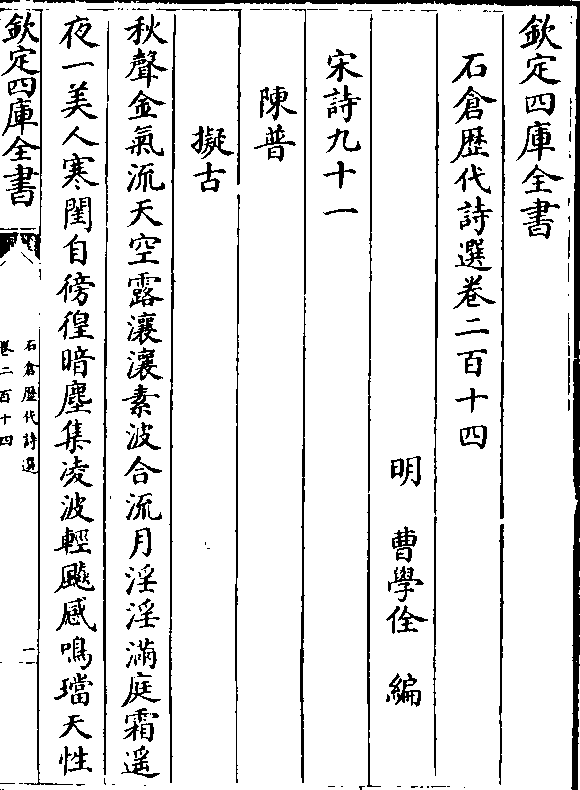 欽定四庫全書
石倉歷代詩選卷二百十四
明　曹學佺　編
宋詩九十一
陳普
擬古
秋聲金氣流天空露瀼瀼素波合流月淫淫滿庭霜遥
夜一美人寒閨自傍徨暗塵集凌波輕飈感鳴璫天性
欽定四庫全書
石倉歷代詩選
卷二百十四
一